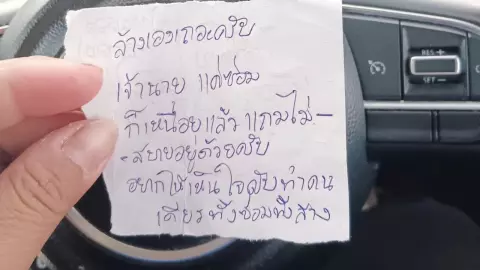 ล้างเองเถอะครับ
เจ้านาย แค่ซ่อม
ก็เหนื่อยแล้ว แถมไม่-
-สบายอยู่ด้วยครับ
อยากให้เห็นใจ ผับทำคน
เดียวทั้งซ่อมทั้งล้าง
RES +
SET -